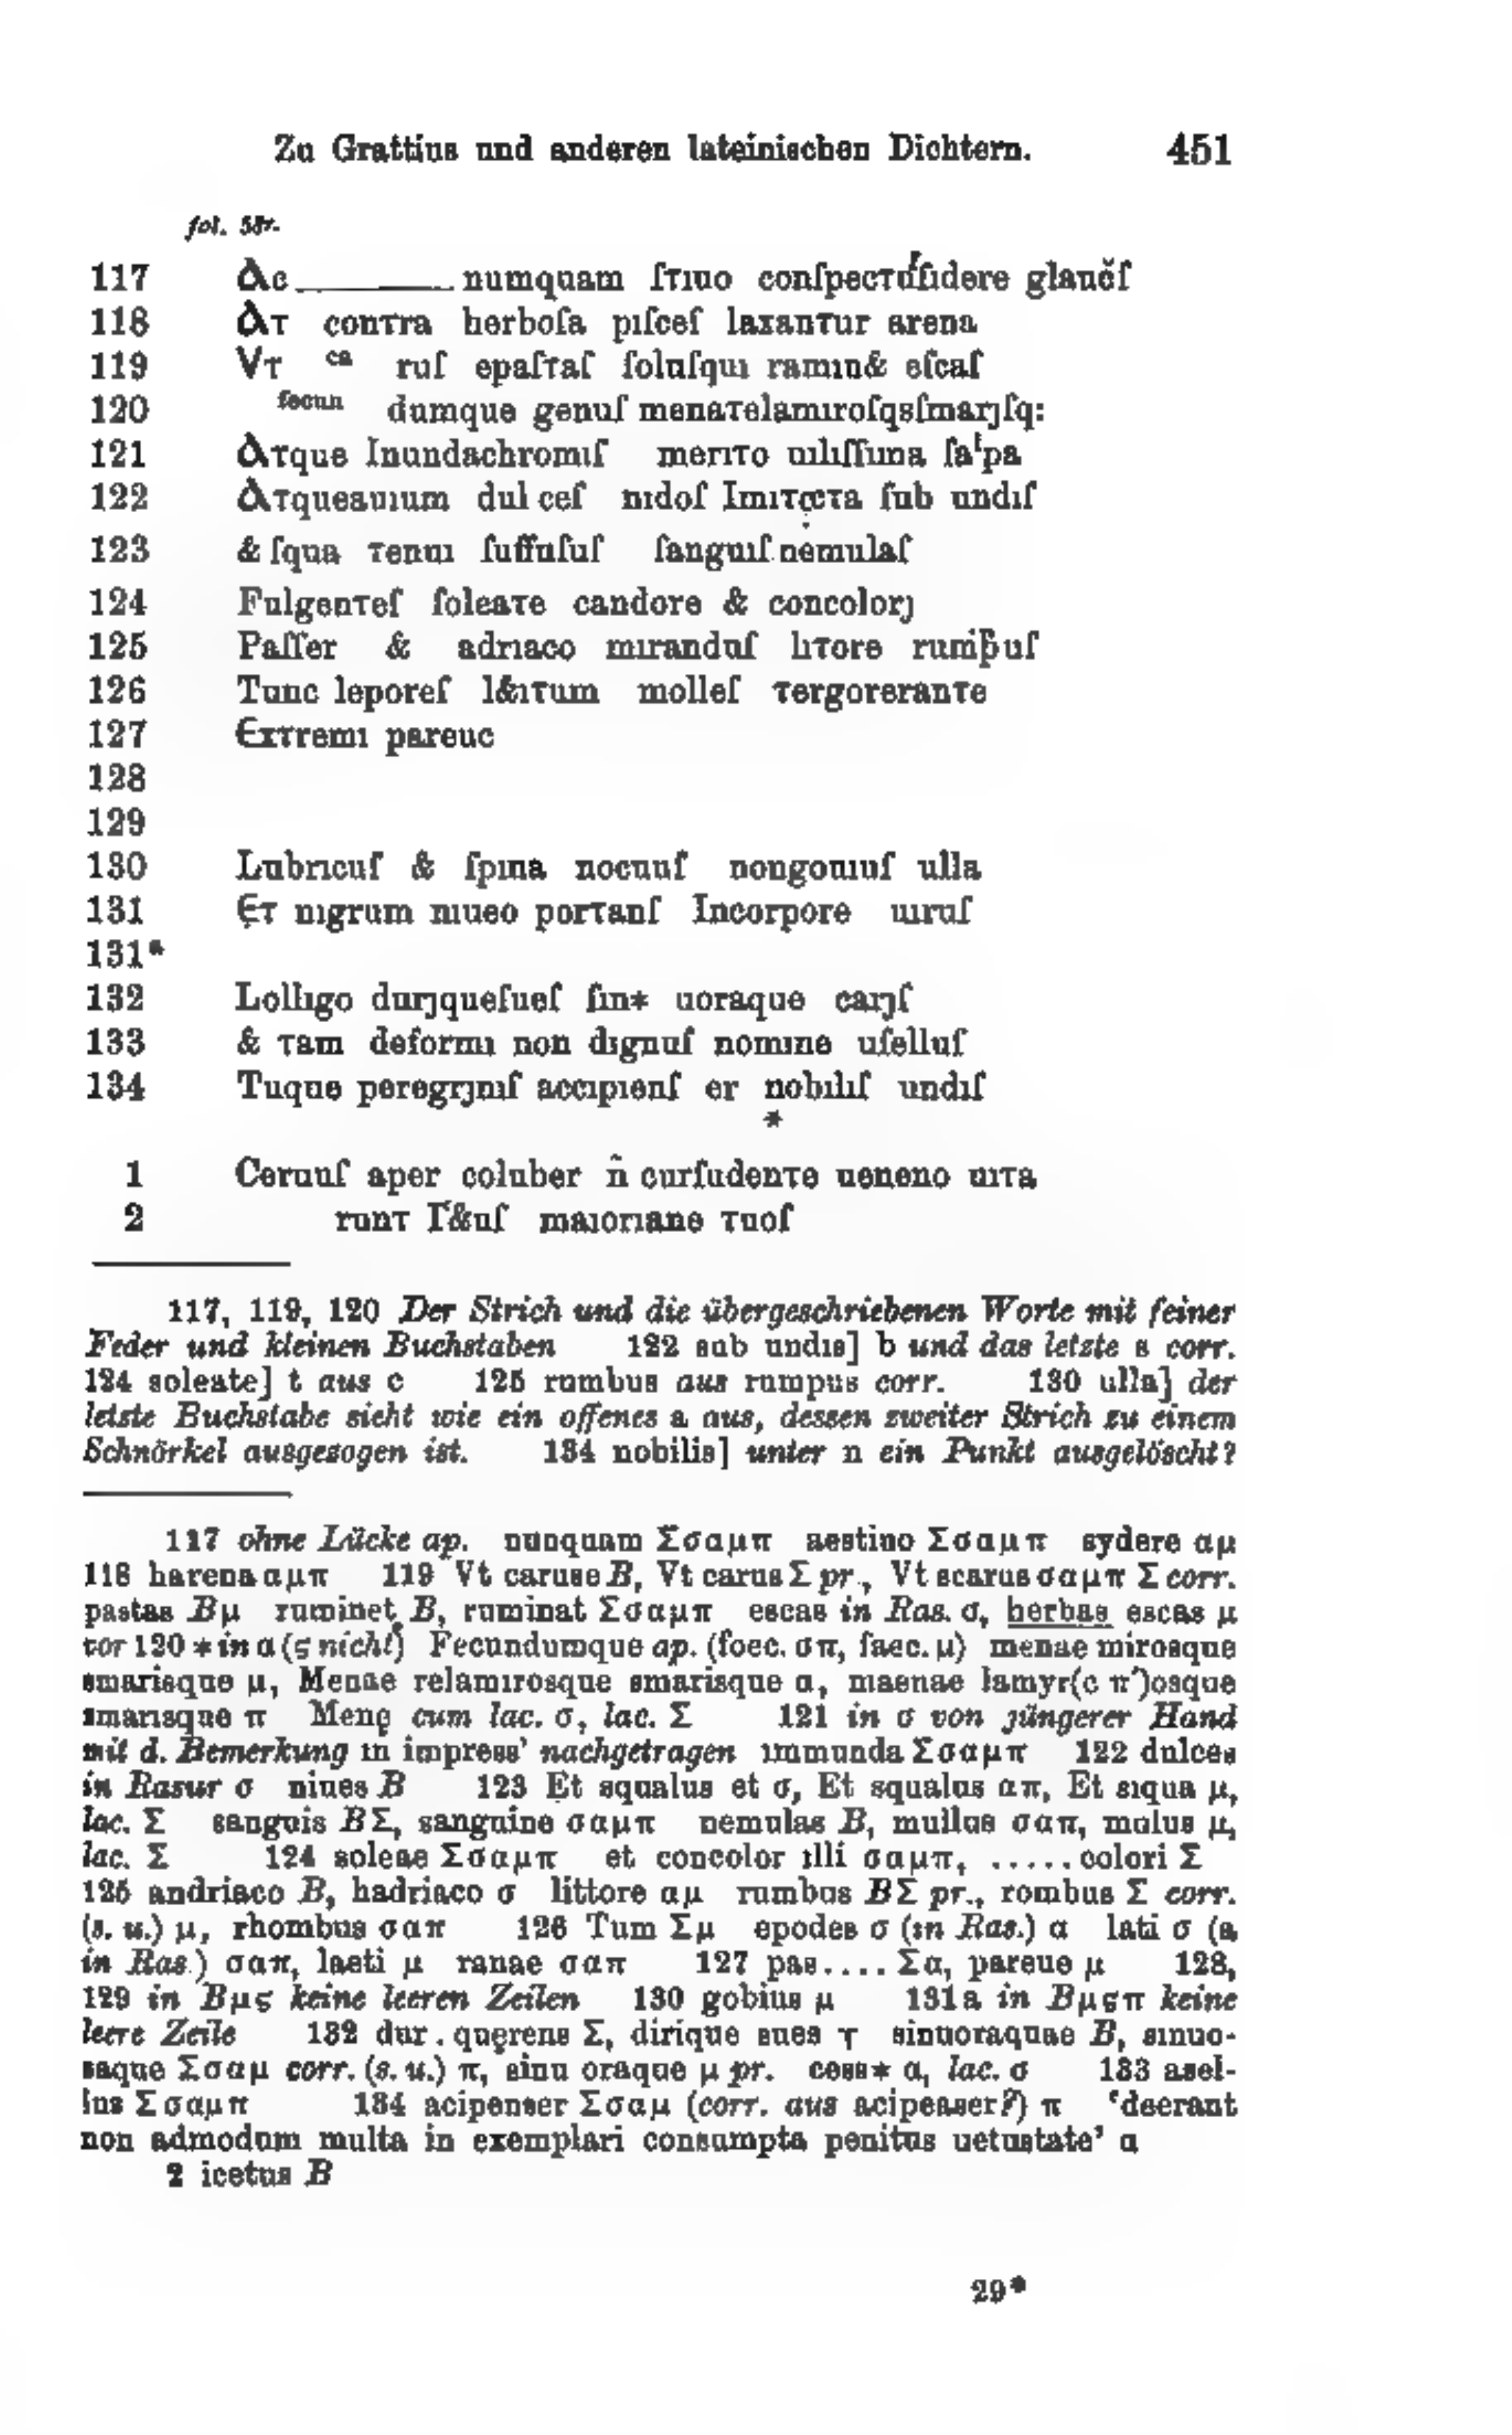 Zu Grattius und anderen lateinischen Dichtern. 451
fol. 58r.
117 Ac ________ numquam ſτιuo conſpecτúſidere glaucͮſ
118 Aτ conτra herboſa pıſceſ laxanτur arena
119 Vτ ca ruſ epaſτaſ ſoluſquı ramın& eſcaſ
120 fecun dumque genuſ menaτelamıroſqsſmarȷſq:
121 Aτque Inundachromıſ merıτo uılıſſıma ſalpa
122 Aτqueauıum dul ceſ nıdoſ Imıτc̣τa ſub undıſ
123 & ſqua τenuı ſuffuſuſ ſanguıſ.nemulaſ
124 Fulgenτeſ ſoleaτe candore & concolorȷ
125 Paſſer & adrıaco mıranduſ lıτore rumpuſ
126 Tunc leporeſ l&ıτum molleſ τergoreranτe
127 Exτremı pareuc
128
129
130 Lubrıcuſ & ſpına nocuuſ nongonıuſ ulla
131 Eτ nıgrum nıueo porτanſ Incorpore uıruſ
131*
132 Lollıgo durȷqueſueſ ſın* uoraque carȷſ
133 & τam deformı non dıgnuſ nomıne uſelluſ
134 Tuque peregrȷnıſ accıpıenſ er nobılıſ undıſ
*
1 Ceruuſ aper coluber n̄ curſudenτe ueneno uıτa
2 runτ I&uſ maıorıane τuoſ
117, 119, 120 Der Strich und die übergeschriebenen Worte mit feiner
Feder und kleinen Buchstaben 122 sub undis] b und das letzte s corr.
124 soleate] t aus c 125 rumbus aus rumpus corr. 130 ulla] der
letzte Buchstabe sieht wie ein offenes a aus, dessen zweiter Strich zu einem
Schnörkel ausgezogen ist. 134 nobilis] unter n ein Punkt ausgelöscht?
117 ohne Lücke ap. nunquam Σσαμπ aestiuo Σσαμπ sydere αμ
118 harena αμπ 119 Vt caruse B, Vt carus Σ pr., Vt scarus σαμπ Σ corr.
pastas Bμ ruminet B, ruminat Σσαμπ escas in Ras. σ, herbas escas μ
vor 120 * in α (ς nicht) Fecundumque ap. (foec. σπ, faec. μ) menae mirosque
smarisque μ, Menae relamirosque smarisque α, maenae lamyr(c π')osque
smarisque π Menę cum lac. σ, lac. Σ 121 in σ von jüngerer Hand
mit d. Bemerkung in impress' nachgetragen immunda Σσαμπ 122 dulces
in Rasur σ niues B 123 Et squalus et σ, Et squalus απ, Et siqua μ,
lac. Σ sanguis BΣ, sanguine σαμπ nemulas B, mullus σαπ, mulus μ,
lac. Σ 124 soleae Σσαμπ et concolor illi σαμπ, ..... colori Σ
125 andriaco B, hadriaco σ littore αμ rumbus BΣ pr., rombus Σ corr.
(s. u.) μ, rhombus σαπ 126 Tum Σμ epodes σ (in Ras.) α lati σ (a
in Ras.) σαπ, laeti μ ranae σαπ 127 pas.... Σα, pareue μ 128,
129 in Bμς keine leeren Zeilen 130 gobius μ 131a in Bμςπ keine
leere Zeile 132 dur . quęrens Σ, dirique sues τ sinuoraquae B, sinuo-
saque Σσαμ corr. (s. u.) π, sinu oraque μ pr. cess* α, lac. σ 133 asel-
lus Σσαμπ 134 acipenser Σσαμ (corr. aus acipeaser?) π 'deerant
non admodum multa in exemplari consumpta penitus uetustate' α
2 icetus B
29*